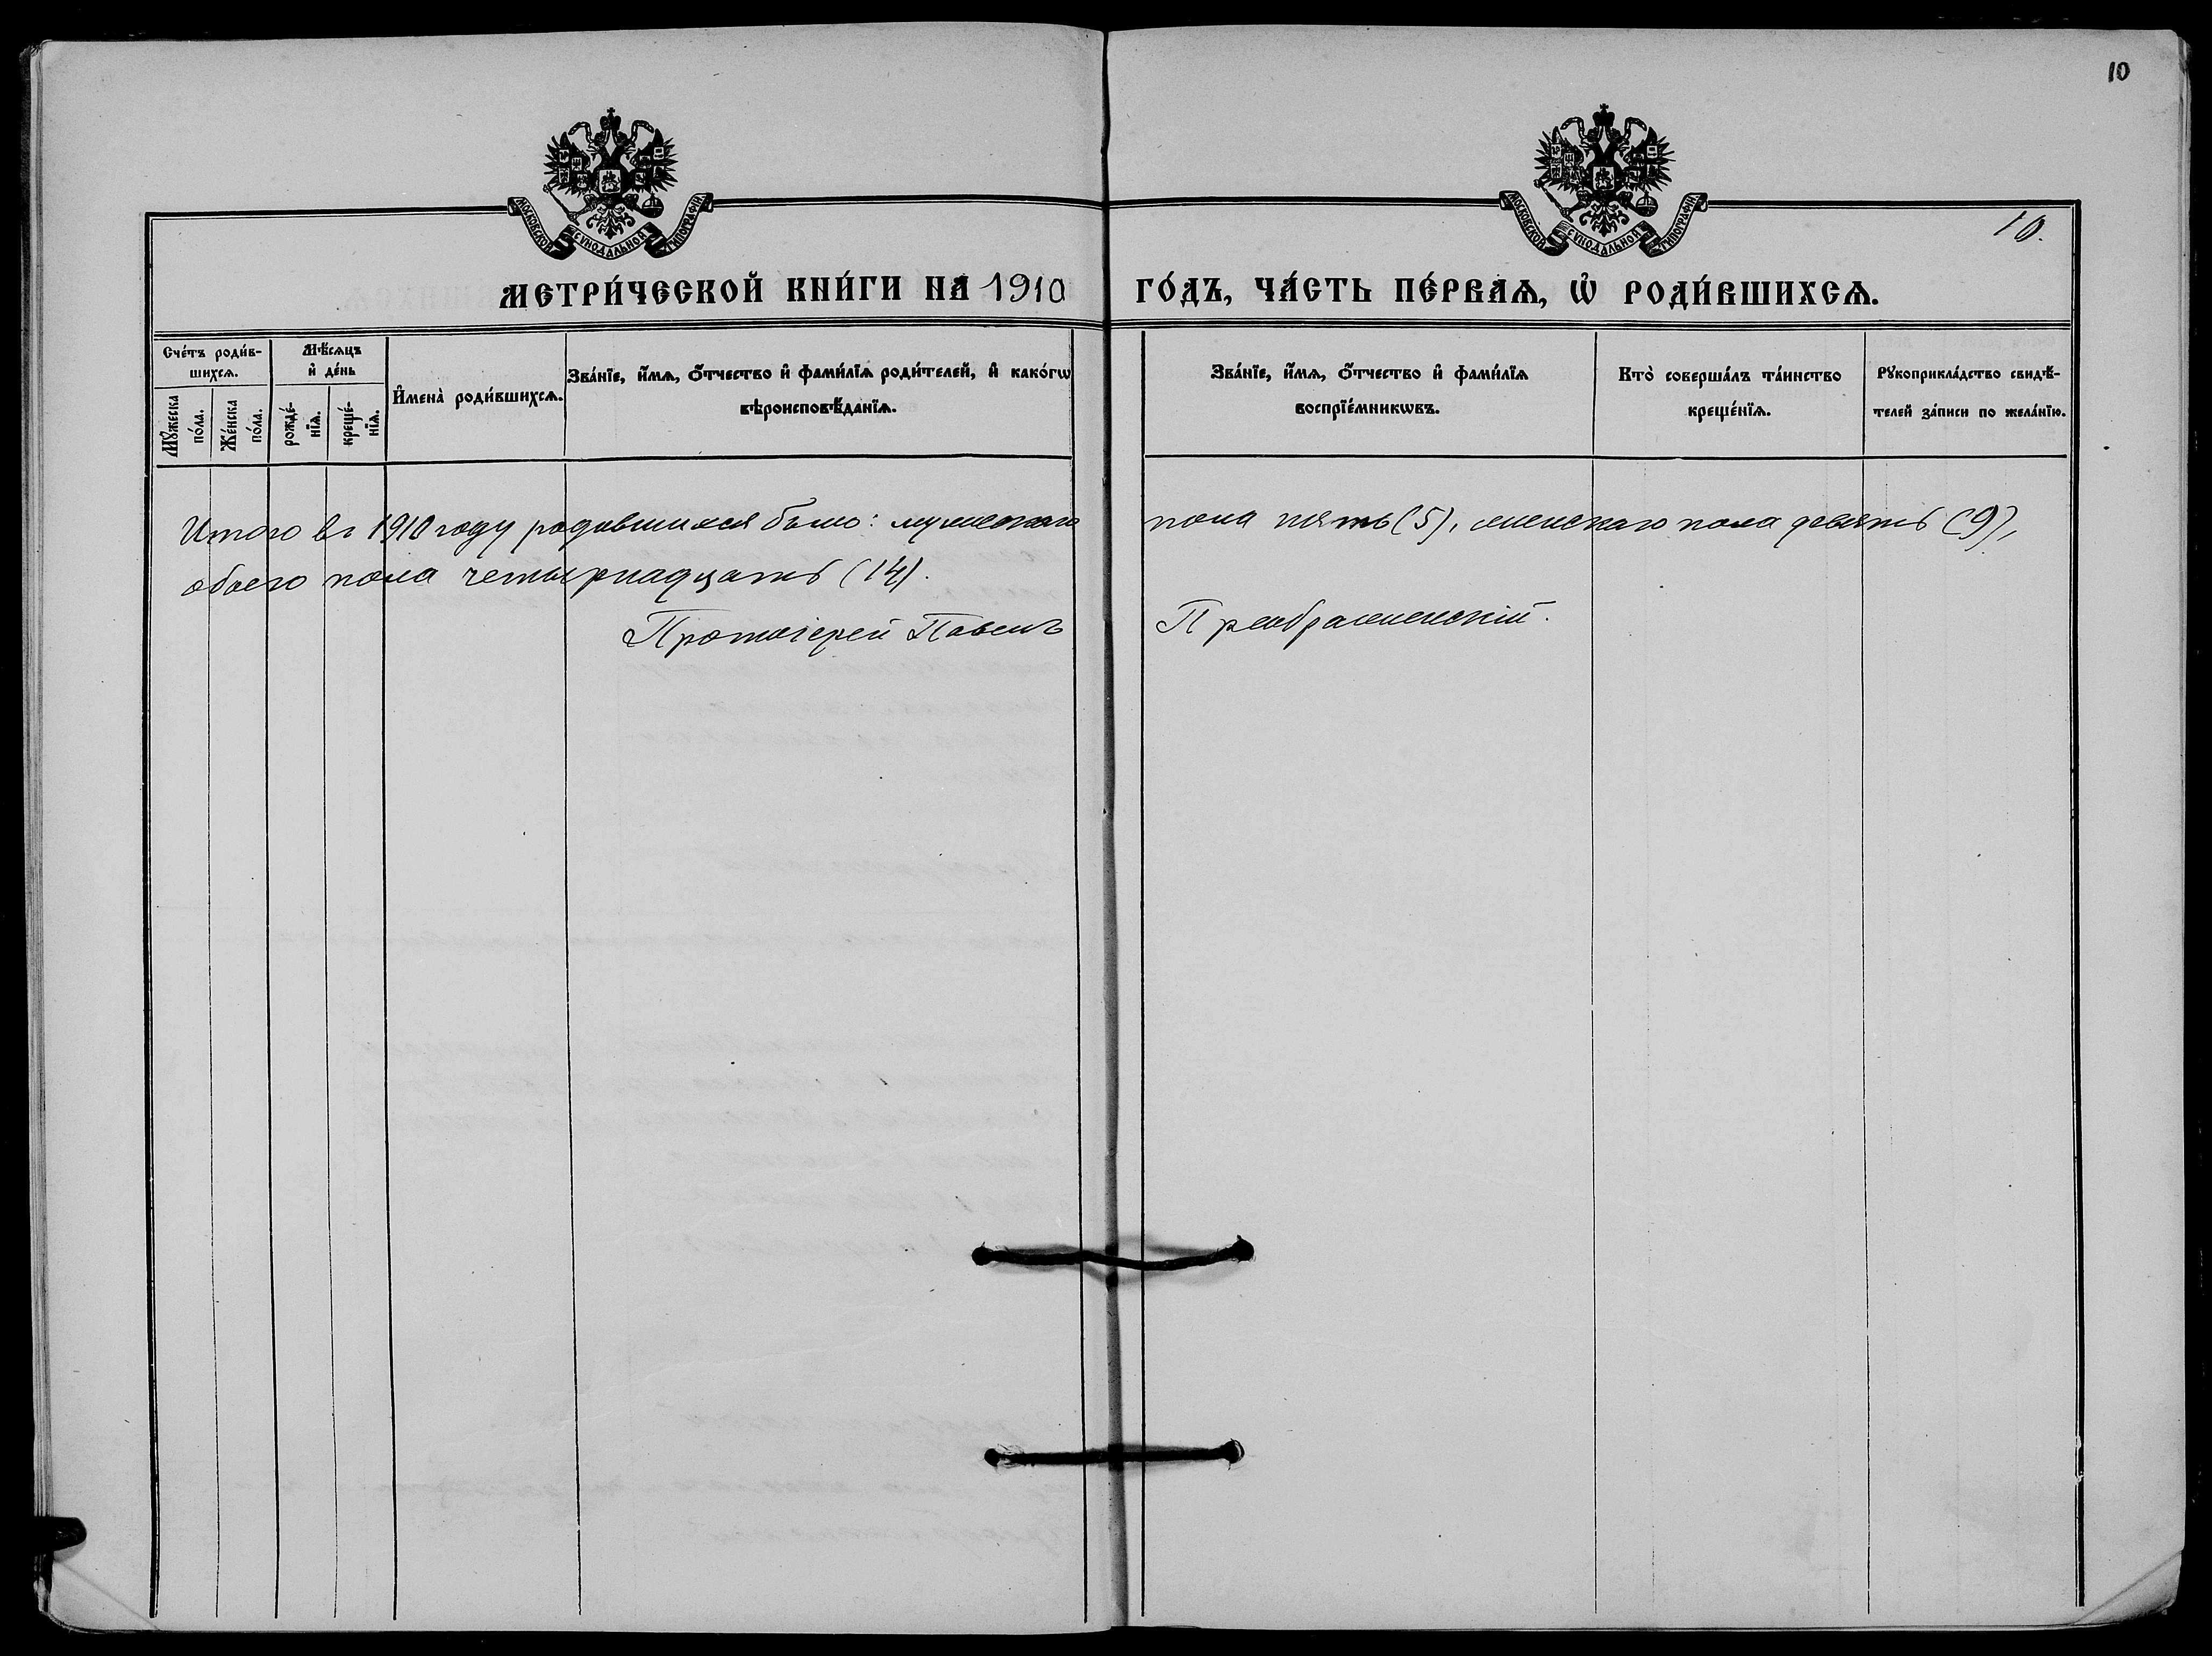 10
МОСКОВСКОЙ СУНОДАЛЬНОЙ ТИПОГРАФІИ
МОСКОВСКОЙ СУНОДАЛЬНОЙ ТИПОГРАФІИ
10.
МЕТРИ́ЧЕСКОЙ КНИ́ГИ НА 1910 ГО́ДЪ, ЧА́СТЬ ПЕ́РВАѦ, Ѡ РОДИ́ВШИХСѦ.
Сче́тъ роди́в-
шихсѧ.
Мꙋ́жеска
по́ла.
Же́нска
по́ла.
Мѣ́сѧцъ
и҆ де́нь
рожде́-
нїѧ.
креще́-
нїѧ.
И҆мена̀ роди́вшихсѧ.
Зва́нїе, и҆́мѧ, ѻ҆́тчество и҆ фами́лїѧ роди́телей, и҆ како́гѡ
вѣроисповѣ́данїѧ.
Зва́нїе, и҆́мѧ, ѻ҆́тчество и҆ фами́лїѧ
воспрїе́мникѡвъ.
Кто̀ соверша́лъ та́инство
креще́нїѧ.
Рꙋкоприкла́дство свидѣ́-
телей за́писи по жела́нїю.
Итого въ 1910 году родившихся было: мужескаго пола пять (5), женскаго пола девять (9),
обоего пола четырнадцать (14).
Протоіерей Павелъ Преображенскій.